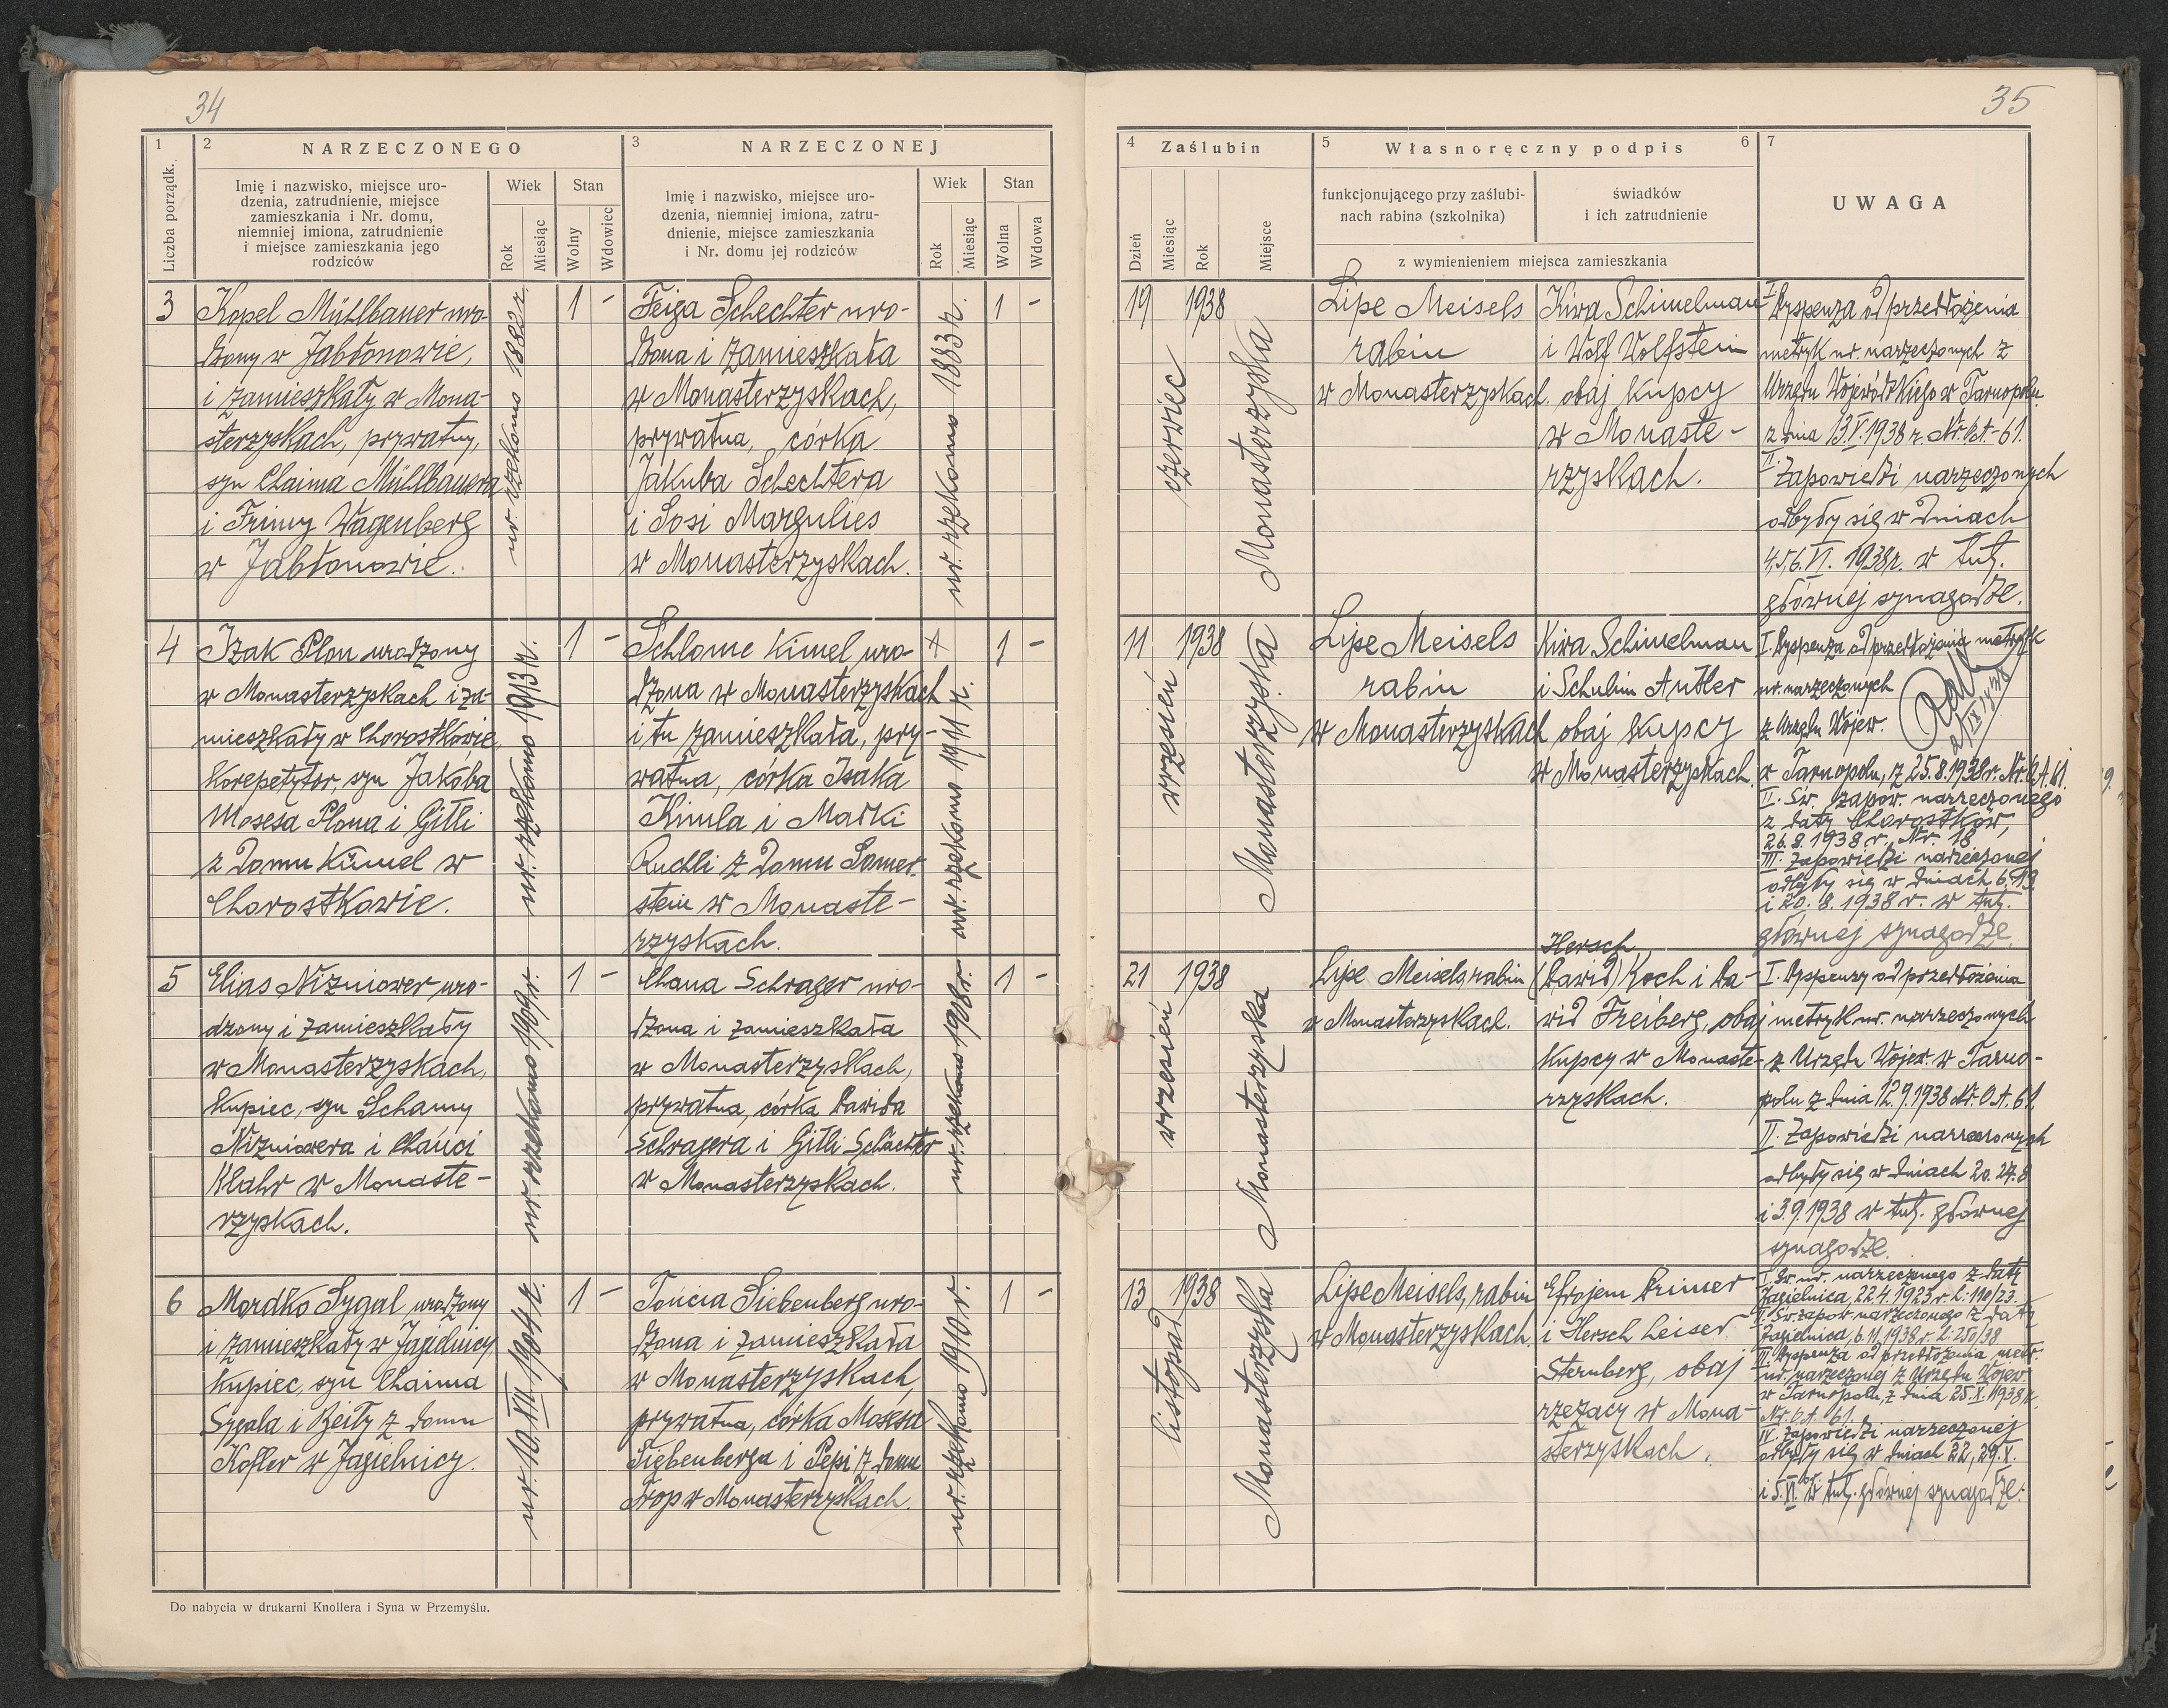 34
1
2
NARZECZONEGO
3
NARZECZONEJ
Liczba porządk.
Imię i nazwisko, miejsce uro-
dzenia, zatrudnienie, miejsce
zamieszkania i Nr. domu,
niemniej imiona, zatrudnienie
i miejsce zamieszkania jego
rodziców
Wiek
Rok
Miesiąc
Stan
Wolny
Wdowiec
Imię i nazwisko, miejsce uro-
dzenia, niemniej imiona, zatru-
dnienie, miejsce zamieszkania
i Nr. domu jej rodziców
Wiek
Rok
Miesiąc
Stan
Wolna
Wdowa
3
Kopel Mühlbauer uro-
dzony w Jabłonowie,
i zamieszkały w Mona-
sterzyskach, prywatny,
syn Chaima Mühlbauera
i Frimy Wagenberg
w Jabłonowie.
ur. rzekomo 1882 r.
1 -
Feiga Schechter uro-
dzona i zamieszkała
w Monasterzyskach,
prywatna, córka
Jakuba Schechtera
i Sosi Margulies
w Monasterzyskach.
ur. rzekomo 1883 r.
1 -
4
Izak Plon urodzony
w Monasterzyskach i za-
mieszkały w Chorostkowie,
korepetytor, syn Jakóba
Mosesa Plona i Gitli
z domu Kümel w
Chorostkowie.
ur. rzekomo 1913 r.
1 -
Schlome Kimel uro-
dzona w Monasterzyskach
i tu zamieszkała, pry-
watna, córka Isaka
Kimla i Małki
Ruchli z domu Somer-
stein w Monaste-
rzyskach.
+
ur. rzekomo 1911 r.
1 -
5
Elias Niżniower uro-
dzony i zamieszkały
w Monasterzyskach,
kupiec, syn Schamy
Niżniowera i Chańci
Klahr w Monaste-
rzyskach.
ur. rzekomo 1909 r.
1 -
Chana Schrager uro-
dzona i zamieszkała
w Monasterzyskach,
prywatna, córka Dawida
Schragera i Gitli Schächter
w Monasterzyskach.
ur. rzekomo 1908 r.
1 -
6
Mordko Sygal urodzony
i zamieszkały w Jagielnicy
kupiec, syn Chaima
Sygala i Beiły z domu
Kofler w Jagielnicy.
ur. 10. XII 1904 r.
1 -
Toncia Siebenberg uro-
dzona i zamieszkała
w Monasterzyskach,
prywatna, córka Mosesa
Siebenberga i Pepi z domu
Trop w Monasterzyskach.
ur. rzekomo 1910 r.
1 -
Do nabycia w drukarni Knollera i Syna w Przemyślu.
35
4
Zaślubin
5
Własnoręczny podpis
6
7
Dzień
Miesiąc
Rok
Miejsce
funkcjonującego przy zaślubi-
nach rabina (szkolnika)
świadków
i ich zatrudnienie
z wymienieniem miejsca zamieszkania
UWAGA
19
czerwiec
1938
Monasterzyska
Lipe Meisels
rabin
w Monasterzyskach.
Kiwa Schimelman
i Wolf Wolfstein
obaj kupcy
w Monaste-
rzyskach.
I. Dyspenza od przedłożenia
metryk ur. narzeczonych z
Urzędu Wojewódzkiego w Tarnopolu
z dnia 13.V.1938 r. Nr. O.A.-61.
II. Zapowiedzi narzeczonych
odbyły się w dniach
4,5,6. VI. 1938 r. w tut.
głównej synagodze.
11
wrzesień
1938
Monasterzyska
Lipe Meisels
rabin
w Monasterzyskach
Kiwa Schimelman
i Schubin Antler
obaj kupcy
w Monasterzyskach.
I. Dyspenza od przedłożenia metryk
ur. narzeczonych
z Urzędu Wojew.
w Tarnopolu, z 25.8.1938 r. Nr. O.A. 61.
II. Św. zapow. narzeczonego
z daty Chorostków,
26.8.1938 r., Nr. 18
III. Zapowiedzi narzeczonej
odbyły się w dniach 6. 13
i 20. 8. 1938 r. w tut.
głównej synagodze
21
wrzesień
1938
Monasterzyska
Lipe Meisels, rabin
w Monasterzyskach.
Hersch
(Dawid) Koch i Da-
wid Freiberg, obaj
kupcy w Monaste-
rzyskach.
I. Dyspenzy od przedłożenia
metryk ur. narzeczonych
z Urzędu Wojew. w Tarno-
polu z dnia 12.9.1938 Nr. O.A. 61.
II. Zapowiedzi narzeczonych
odbyły się w dniach 20. 27.8
i 3.9.1938 w tut. głównej
synagodze.
13
listopad
1938
Monasterzyska
Lipe Meisels, rabin
w Monasterzyskach.
Efrojem Primer
i Hersch Leiser
Sternberg, obaj
rzezacy w Mona-
sterzyskach.
I. Św. ur. narzeczonego z daty
Jagielnica, 22.4.1923 r. L: 110/23.
II. Św. zapow. narzeczonego z daty
Jagielnica, 6.11.1938 r. L: 250/38
III. Dyspenza od przedłożenia metr.
ur. narzeczonej z Urzędu Wojew.
w Tarnopolu, z dnia 25.X.1938 r.
Nr. O.A. 61.
IV. Zapowiedzi narzeczonej
odbyły się w dniach 22, 29.X.
i 5.XI. br. w tut. głównej synagodze.